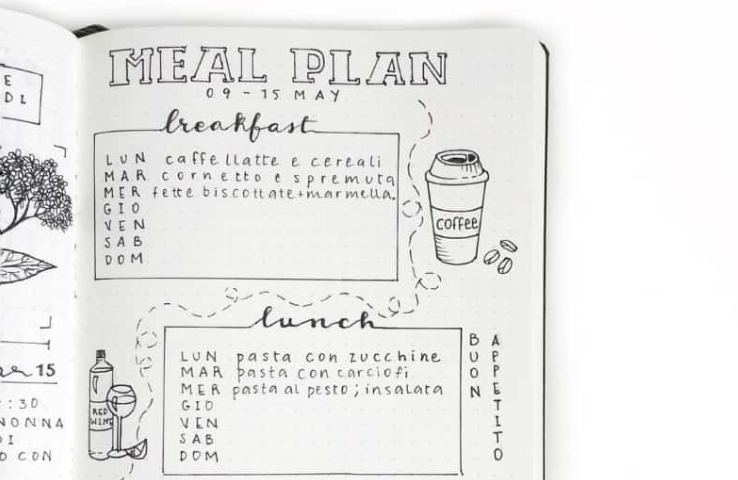 E
DI
15
:30
NONNA
DI
O CON
MEAL PLAN
09 - 15 MAY
breakfast
LUN caffellatte e cereali
MAR cornetto e spremuta
MER fette biscottate+marmella.
GIO
VEN
SAB
DOM
coffee
lunch
LUN pasta con zucchine
MAR pasta con carciofi
MER pasta al pesto; insalata
GIO
VEN
SAB
DOM
RED
WINE
BUON
APPETITO